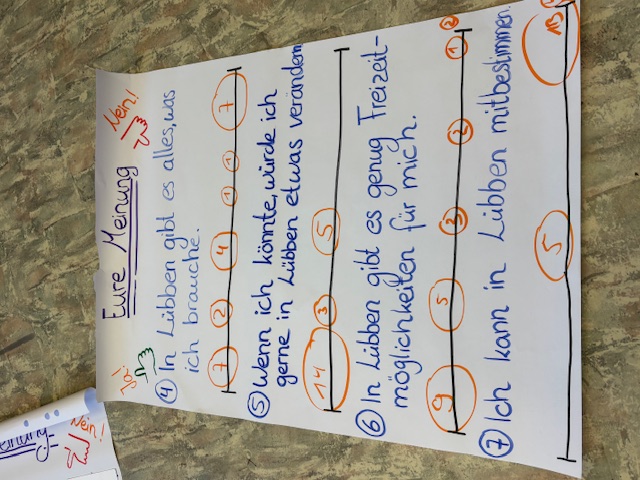 Ja! Eure Meinung Nein!
④ In Lübben gibt es alles, was
ich brauche.
7 2 4 1 1 7
⑤ Wenn ich könnte, würde ich
gerne in Lübben etwas verändern
14 3 5
⑥ In Lübben gibt es genug Freizeit-
möglichkeiten für mich.
9 5 3 2 1 2
⑦ Ich kann in Lübben mitbestimmen.
5
Nein!